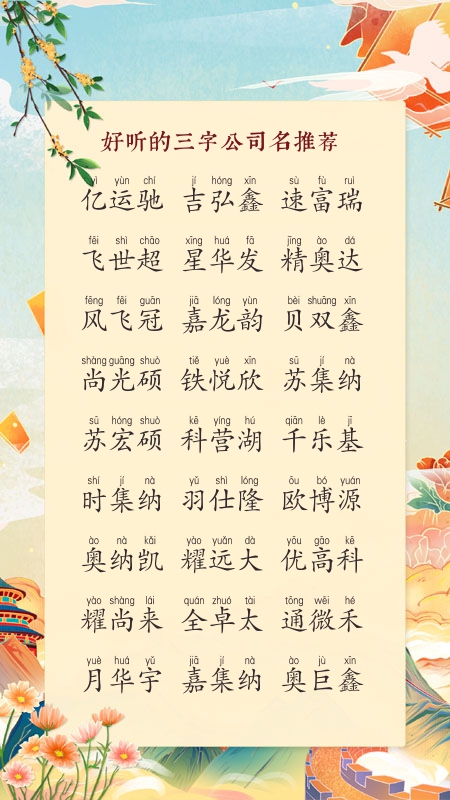 好听的三字公司名推荐
yì yùn chí jí hóng xīn sù fù ruì
亿运驰 吉弘鑫 速富瑞
fēi shì chāo xīng huá fā jīng ào dá
飞世超 星华发 精奥达
fēng fēi guān jiā lóng yùn bèi shuāng xīn
风飞冠 嘉龙韵 贝双鑫
shàng guāng shuò tiě yuè xīn sū jí nà
尚光硕 铁悦欣 苏集纳
sū hóng shuò kē yíng hú qiān lè jī
苏宏硕 科营湖 千乐基
shí jí nà yǔ shì lóng ōu bó yuán
时集纳 羽仕隆 欧博源
ào nà kǎi yào yuǎn dà yōu gāo kē
奥纳凯 耀远大 优高科
yào shàng lái quán zhuó tài tōng wēi hé
耀尚来 全卓太 通微禾
yuè huá yǔ jiā jí nà ào jù xīn
月华宇 嘉集纳 奥巨鑫